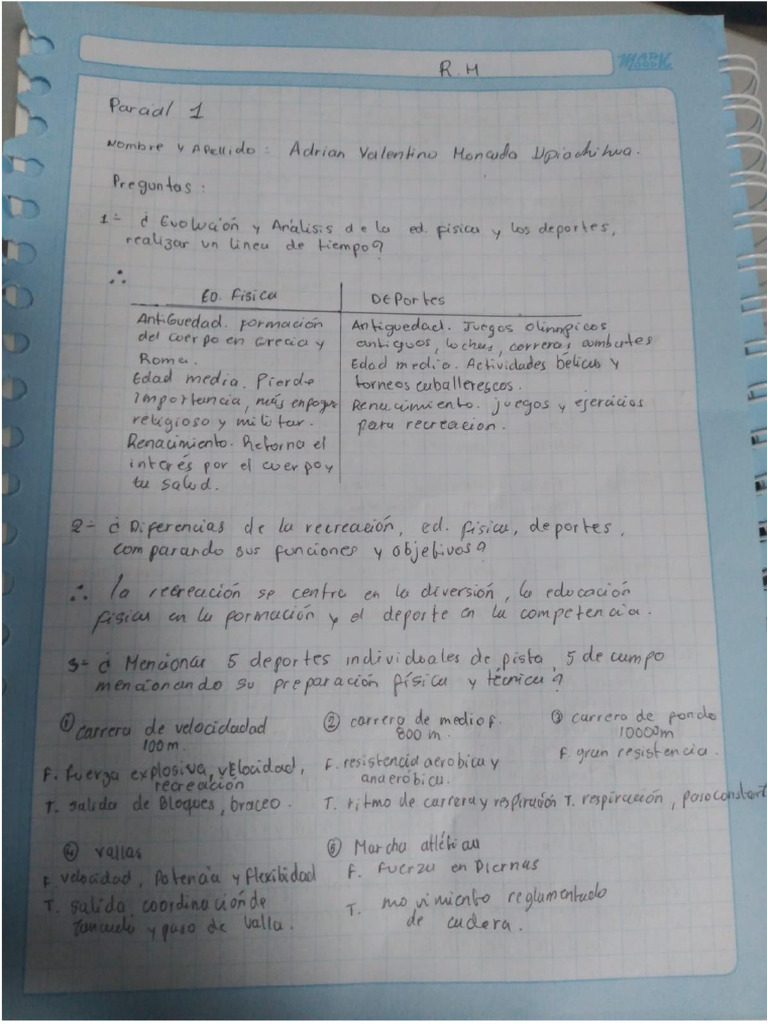 R.H
Parcial 1
Nombre y Apellido: Adrian Valentino
Preguntas:
1- ¿Evolución y Análisis de la ed. fisica y los deportes,
realizar un linea de tiempo?
∴
ED. Fisica
DEPortes
AntiGuedad. formación
del cuerpo en Grecia y
Roma.
Edad media. Pierde
Importancia, más enfoque
religioso y militar.
Renacimiento. Retorna el
interés por el cuerpo y
tu salud.
Antiguedad. Juegos olimpicos
antiguos, luchas, carreras combates
Edad media. Actividades bélicas y
torneos caballerescos.
Renacimiento. juegos y ejercicios
para recreacion.
2- ¿Diferencias de la recreación, ed. fisica, deportes,
comparando sus funciones y objetivos?
∴ la recreación se centra en la diversión, la educación
fisica en la formación y el deporte en la competencia.
3- ¿Mencionar 5 deportes individuales de pista, 5 de campo
mencionando su preparación física y técnica?
① carrera de velocidadad
100 m.
F. fuerza explosiva, vElocidad,
recreación
T. salida de Bloques, braceo.
② carrera de mediof.
800 m.
F. resistencia aerobica y
anaeróbica.
T. ritmo de carrera y respiración
③ carrera de fondo
10000m
F. gran resistencia.
T. respiración, paso constant
④ vallas
F. velocidad, Potencia y flexibidad
T. salida, coordinación de
y paso de valla.
⑤ Marcha atlética
F. Fuerza en Piernas
T. movimiento reglamentado
de cadera.